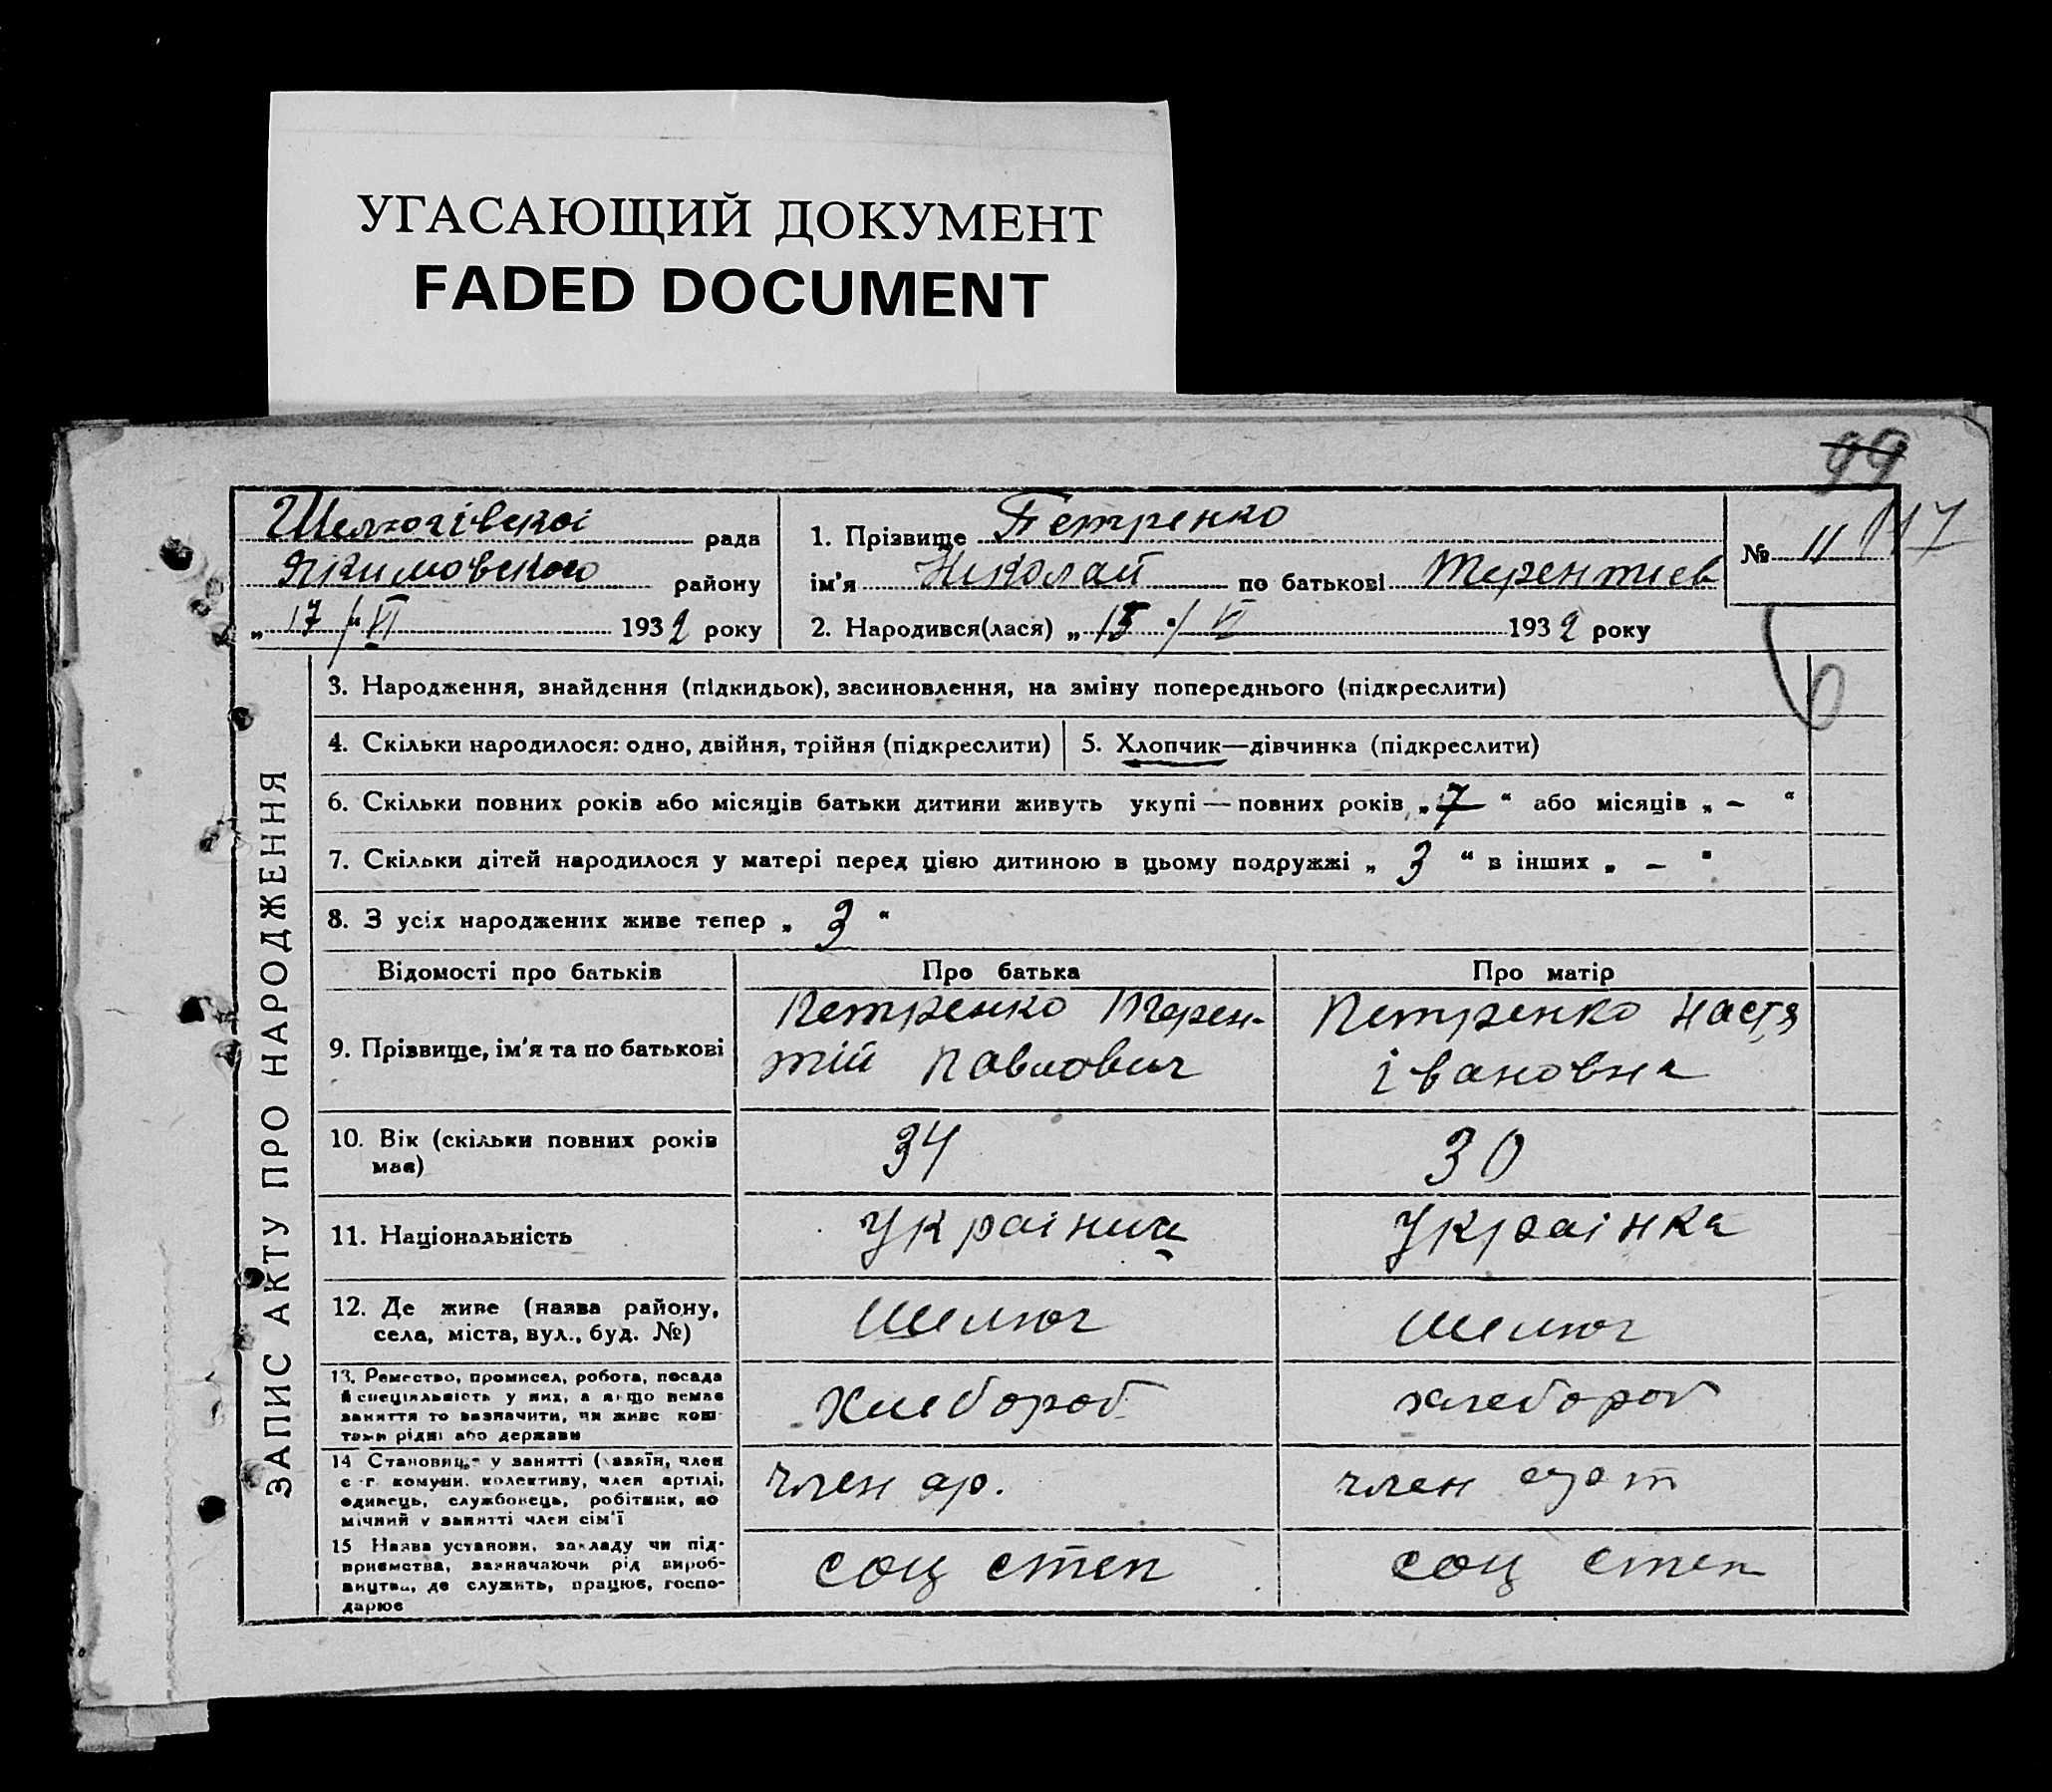 УГАСАЮЩИЙ ДОКУМЕНТ
FADED DOCUMENT
99
Шелюгівскоі рада
Якимовского району
„ 17 / VI 1932 року
1. Прізвище Петренко
ім'я Ніколай по батькові Терентиев
2. Народився(лася) „ 15 “ / VI 1932 року
№ 11
117
ЗАПИС АКТУ ПРО НАРОДЖЕННЯ
3. Народження, знайдення (підкидьок), засиновлення, на зміну попереднього (підкреслити)
4. Скільки народилося: одно, двійня, трійня (підкреслити)
5. Хлопчик—дівчинка (підкреслити)
6. Скільки повних років або місяців батьки дитини живуть укупі — повних років „ 7 “ або місяців „ – “
7. Скільки дітей народилося у матері перед цією дитиною в цьому подружжі „ 3 “ в інших „ – “
8. З усіх народжених живе тепер „ 3 “
Відомості про батьків
Про батька
Про матір
9. Прізвище, ім'я та по батькові
Петренко Терен-
тій Павлович
Петренко Настя
Івановна
10. Вік (скільки повних років
має)
34
30
11. Національність
Украіниц
Украінка
12. Де живе (назва району,
села, міста, вул., буд. №)
Шелюг
Шелюг
13. Ремество, промисел, робота, посада
й спеціяльність у них, а якщо немає
заняття то зазначити, чи живе кош-
тами рідні або держави
Хлебороб
хлебороб
14 Становище у занятті (хазяїн, член
с.-г. комуни, колективу, член артілі,
одинець, службовець, робітник, по
мічний у занятті член сім'ї
член ар.
член
15 Назва установи, закладу чи під-
приємства, зазначаючи рід вироб-
ництва, де служить, працює, госпо-
дарює
соц степ
соц степ